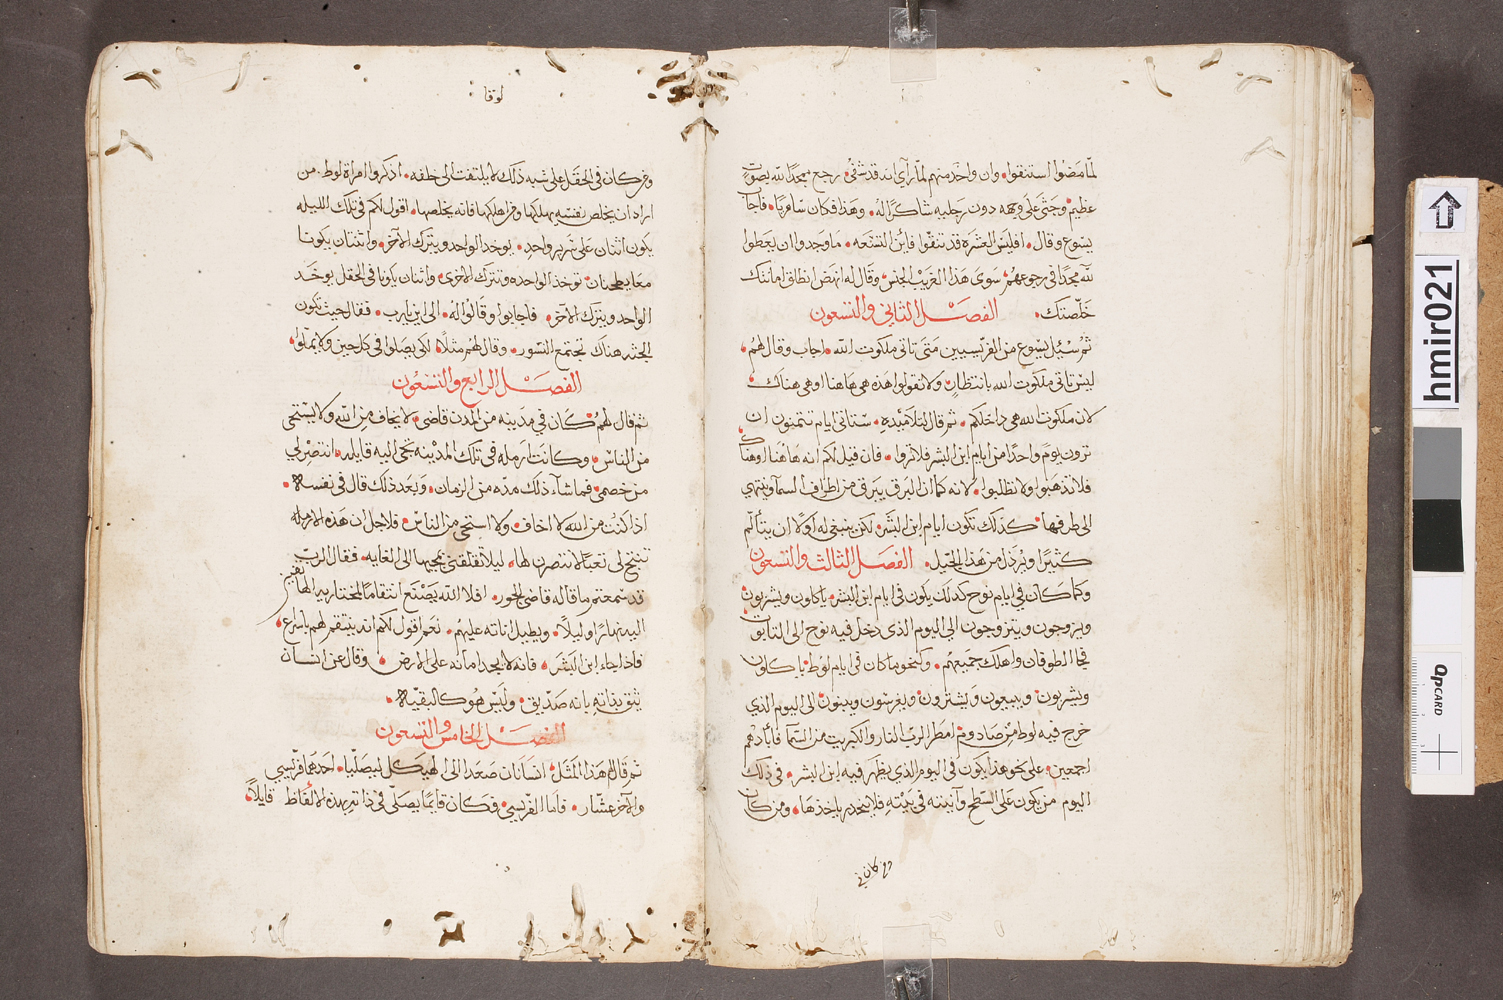 لمّا مضوا استنقوا. وان واحد منهم لمّا رآى انه قد شفى، رجع ممجدًا لله بصوت
عظيم. وجثى على وجهه دون رجليه شاكرًا له. وهذا فكان سامريًا. فاجاب
يسوع وقال. افليس العشرة قد تنقوا فاين التسعه. ما وجدوا ان يعطوا
لله مجدًا في رجوعهم سوى هذا الغريب الجنس. وقال له انهض انطلق امانتك
خلّصتك. الفصل الثاني والتسعون
ثم سئل يسوع من الفريسيين متى تاتي ملكوت الله. اجاب وقال لهم.
ليس تاتي ملكوت الله بانتظار. ولا تقولوا هذه هي هاهنا او هي هناك.
لان ملكوت الله هي داخلكم. ثم قال لتلاميذه. ستاتي ايام تتمنون ان
ترون يومًا واحدًا من ايام ابن البشر فلا تروا. فان قيل لكم انه هاهنا او هناك
فلا تذهبوا ولا تطلبوا. لانه كما ان البرق يبرق من اطراف السما وينتهي
الى طرفها. كذلك تكون ايام ابن البشر. لكن ينبغي له اولًا ان يتالم
كثيرًا ويُرذل من هذا الجيل. الفصل الثالث والتسعون
وكما كان في ايام نوح كذلك يكون في ايام ابن البشر. ياكلون ويشربون
ويزوجون ويتزوجون الى اليوم الذي دخل فيه نوح الى التابوت
فجا الطوفان واهلك جميعهم. وكنحو ما كان في ايام لوط. ياكلون
ويشربون. ويبيعون ويشترون. ويغرسون ويبنون. الى اليوم الذي
خرج فيه لوط من صادوم. امطر الرب النار والكبريت من السما فابادهم
اجمعين. على نحو هذا يكون في اليوم الذي يظهر فيه ابن البشر. في ذلك
اليوم من يكون على السطح وآنيته في بيته فلا ينحدر ياخذها. ومن كان
ومن كان في
لوقا
ومن كان في الحقل على شبه ذلك لا يلتفت الى خلفه. اذكروا امراة لوط. من
اراد ان يخلص نفسه يهلكها ومن اهلكها فانه يخلصها. اقول لكم في تلك الليله
يكون اثنان على سرير واحد. يوخد الواحد ويترك الآخر. واثنتان يكونا
معًا يطحنان. توخذ الواحده وتترك الاخرى. واثنان يكونا في الحقل يوخد
الواحد ويترك الآخر. فاجابوا وقالوا له. الى اين يارب. فقال حيث تكون
الجثه هناك تجتمع النسور. وقال لهم مثلًا. لكي يصلوا في كل حين ولا يملوا.
الفصل الرابع والتسعون
ثم قال لهم. كان في مدينه من المدن قاضي. لا يخاف من الله ولا يستحي
من الناس. وكانت ارمله في تلك المدينه تجي اليه قايله. انتصر لي
من خصمي. فما شآء ذلك مدّه من الزمان. وبعد ذلك قال في نفسه.
اذا كنت من الله لا اخاف. ولا استحي من الناس. فلاجل ان هذه الارمله
تنتج لي تعبًا لانتصرن لها. ليلا تقلقني بمجيها الى الغايه. فقال الرب
قد سمعتم ما قاله قاضي الجور. افلا الله يصنع انتقامًا لمختاريه الهاتفين
اليه نهارًا وليلًا. ويطيل اناته عليهم. نعم اقول لكم انه ينتقم لهم باسرع.
فاذا جاء ابن البشر. فانه لا يجد امانه على الارض. وقال عن انسان
يثق بذاته بانه صدّيق. وليس هو كالبقيه.
الفصل الخامس والتسعون
ثم قال لهم هذا المثل. انسانان صعدا الى الهيكل ليصليا. احدهما فريسي
والآخر عشّار. فاما الفريسي. فكان قايمًا يصلّي في ذاته بهذه الالفاظ قايلًا.
hmir021
QPCARD